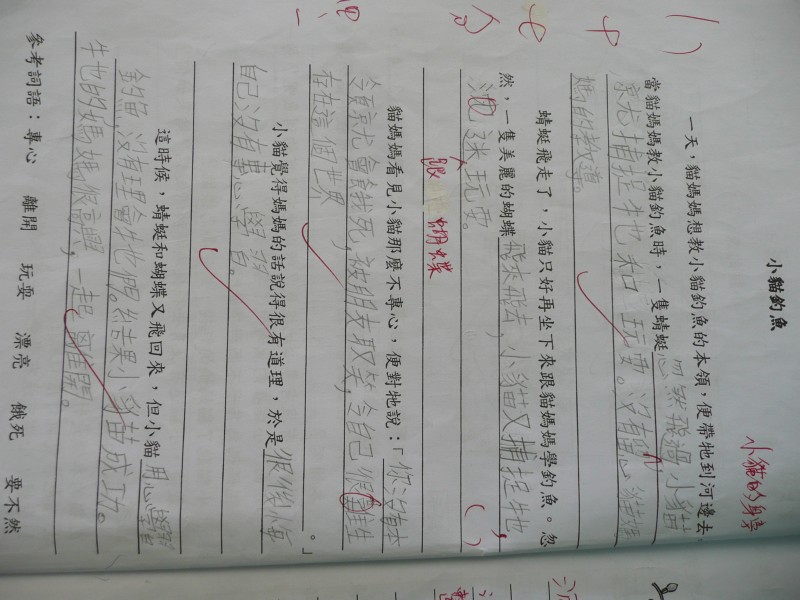 小貓釣魚
小貓的身旁
一天，貓媽媽想教小貓釣魚的本領，便帶牠到河邊去。
當貓媽媽教小貓釣魚時，一隻蜻蜓忽然飛過小貓
就去捕捉牠和玩耍。沒有留心貓媽
媽的教導。
蜻蜓飛走了，小貓只好再坐下來跟貓媽媽學釣魚。忽
然，一隻美麗的蝴蝶飛來飛去，小貓又捕捉牠，
迷玩耍。
跟蝴蝶
貓媽媽看見小貓那麼不專心，便對牠說：「你沒有本
領就會餓死，被朋友取笑，令自己很難生
存在這個世界
。」
小貓覺得媽媽的話說得很有道理，於是很後悔
自己沒有專心學習。
這時候，蜻蜓和蝴蝶又飛回來，但小貓用心學習
釣魚，沒有理會牠們。結果小貓成功。
牠的媽媽很高興，一起離開。
參考詞語：專心 離開 玩耍 漂亮 餓死 要不然